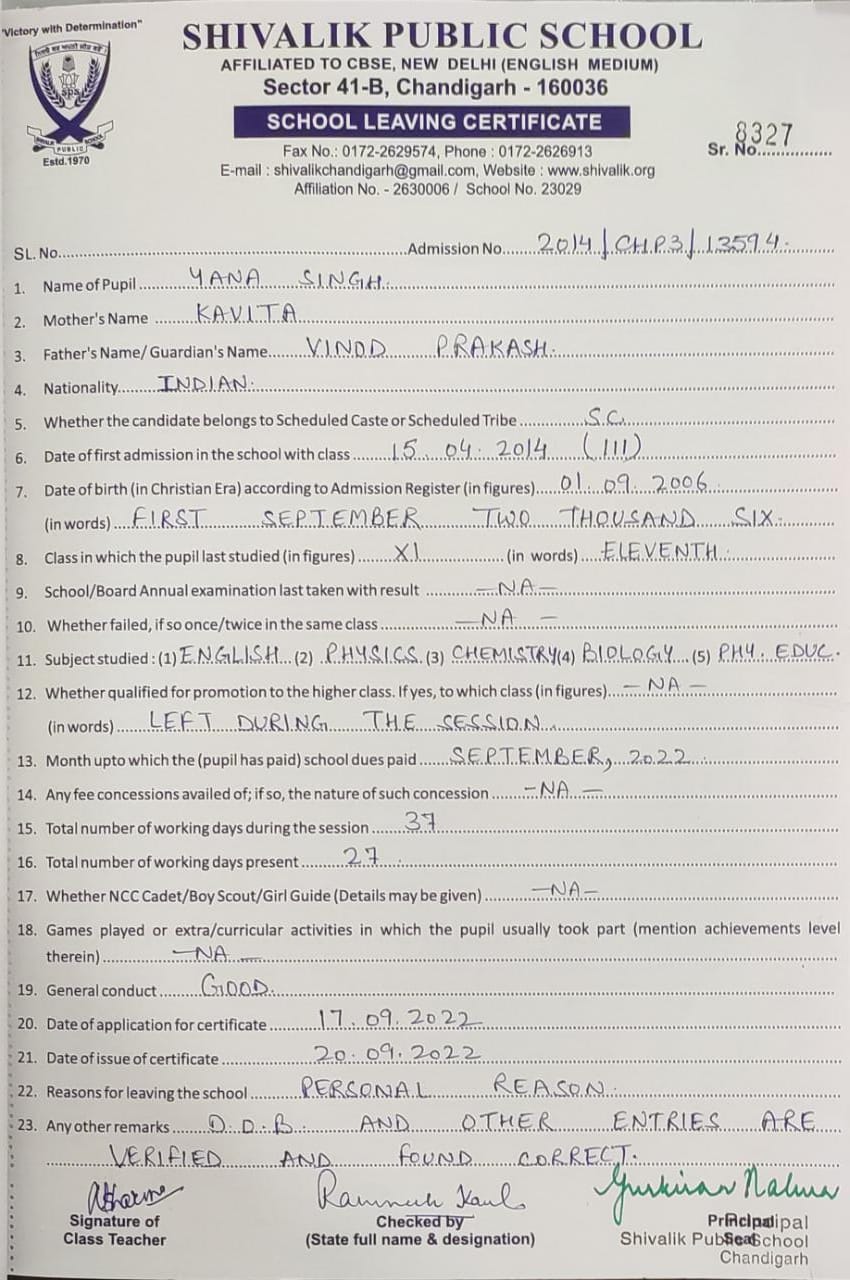 "Victory with Determination"
SHIVALIK PUBLIC SCHOOL
AFFILIATED TO CBSE, NEW DELHI (ENGLISH MEDIUM)
Sector 41-B, Chandigarh - 160036
SCHOOL LEAVING CERTIFICATE
SPS
PUBLIC SCHOOL
Estd.1970
Fax No.: 0172-2629574, Phone : 0172-2626913
E-mail : shivalikchandigarh@gmail.com, Website : www.shivalik.org
Affiliation No. - 2630006 / School No. 23029
Sr. No. 8327
SL. No. Admission No. 2014/CHP3/13594.
1. Name of Pupil YANA SINGH.
2. Mother's Name KAVITA
3. Father's Name/ Guardian's Name VINOD PRAKASH.
4. Nationality INDIAN.
5. Whether the candidate belongs to Scheduled Caste or Scheduled Tribe S.C.
6. Date of first admission in the school with class 15.04.2014 (III)
7. Date of birth (in Christian Era) according to Admission Register (in figures) 01.09.2006
(in words) FIRST SEPTEMBER TWO THOUSAND SIX.
8. Class in which the pupil last studied (in figures) XI (in words) ELEVENTH.
9. School/Board Annual examination last taken with result —NA—
10. Whether failed, if so once/twice in the same class —NA—
11. Subject studied : (1) ENGLISH (2) PHYSICS (3) CHEMISTRY (4) BIOLOGY (5) PHY. EDUC.
12. Whether qualified for promotion to the higher class. If yes, to which class (in figures) —NA—
(in words) LEFT DURING THE SESSION.
13. Month upto which the (pupil has paid) school dues paid SEPTEMBER, 2022
14. Any fee concessions availed of; if so, the nature of such concession —NA—
15. Total number of working days during the session 37
16. Total number of working days present 27
17. Whether NCC Cadet/Boy Scout/Girl Guide (Details may be given) —NA—
18. Games played or extra/curricular activities in which the pupil usually took part (mention achievements level
therein) —NA—
19. General conduct GOOD.
20. Date of application for certificate 17.09.2022
21. Date of issue of certificate 20.09.2022
22. Reasons for leaving the school PERSONAL REASON.
23. Any other remarks D.O.B. AND OTHER ENTRIES ARE
VERIFIED AND FOUND CORRECT.
ASharma
Signature of
Class Teacher
Kaul
Checked by
(State full name & designation)
Principal
Seal
Principal
Shivalik Public School
Chandigarh